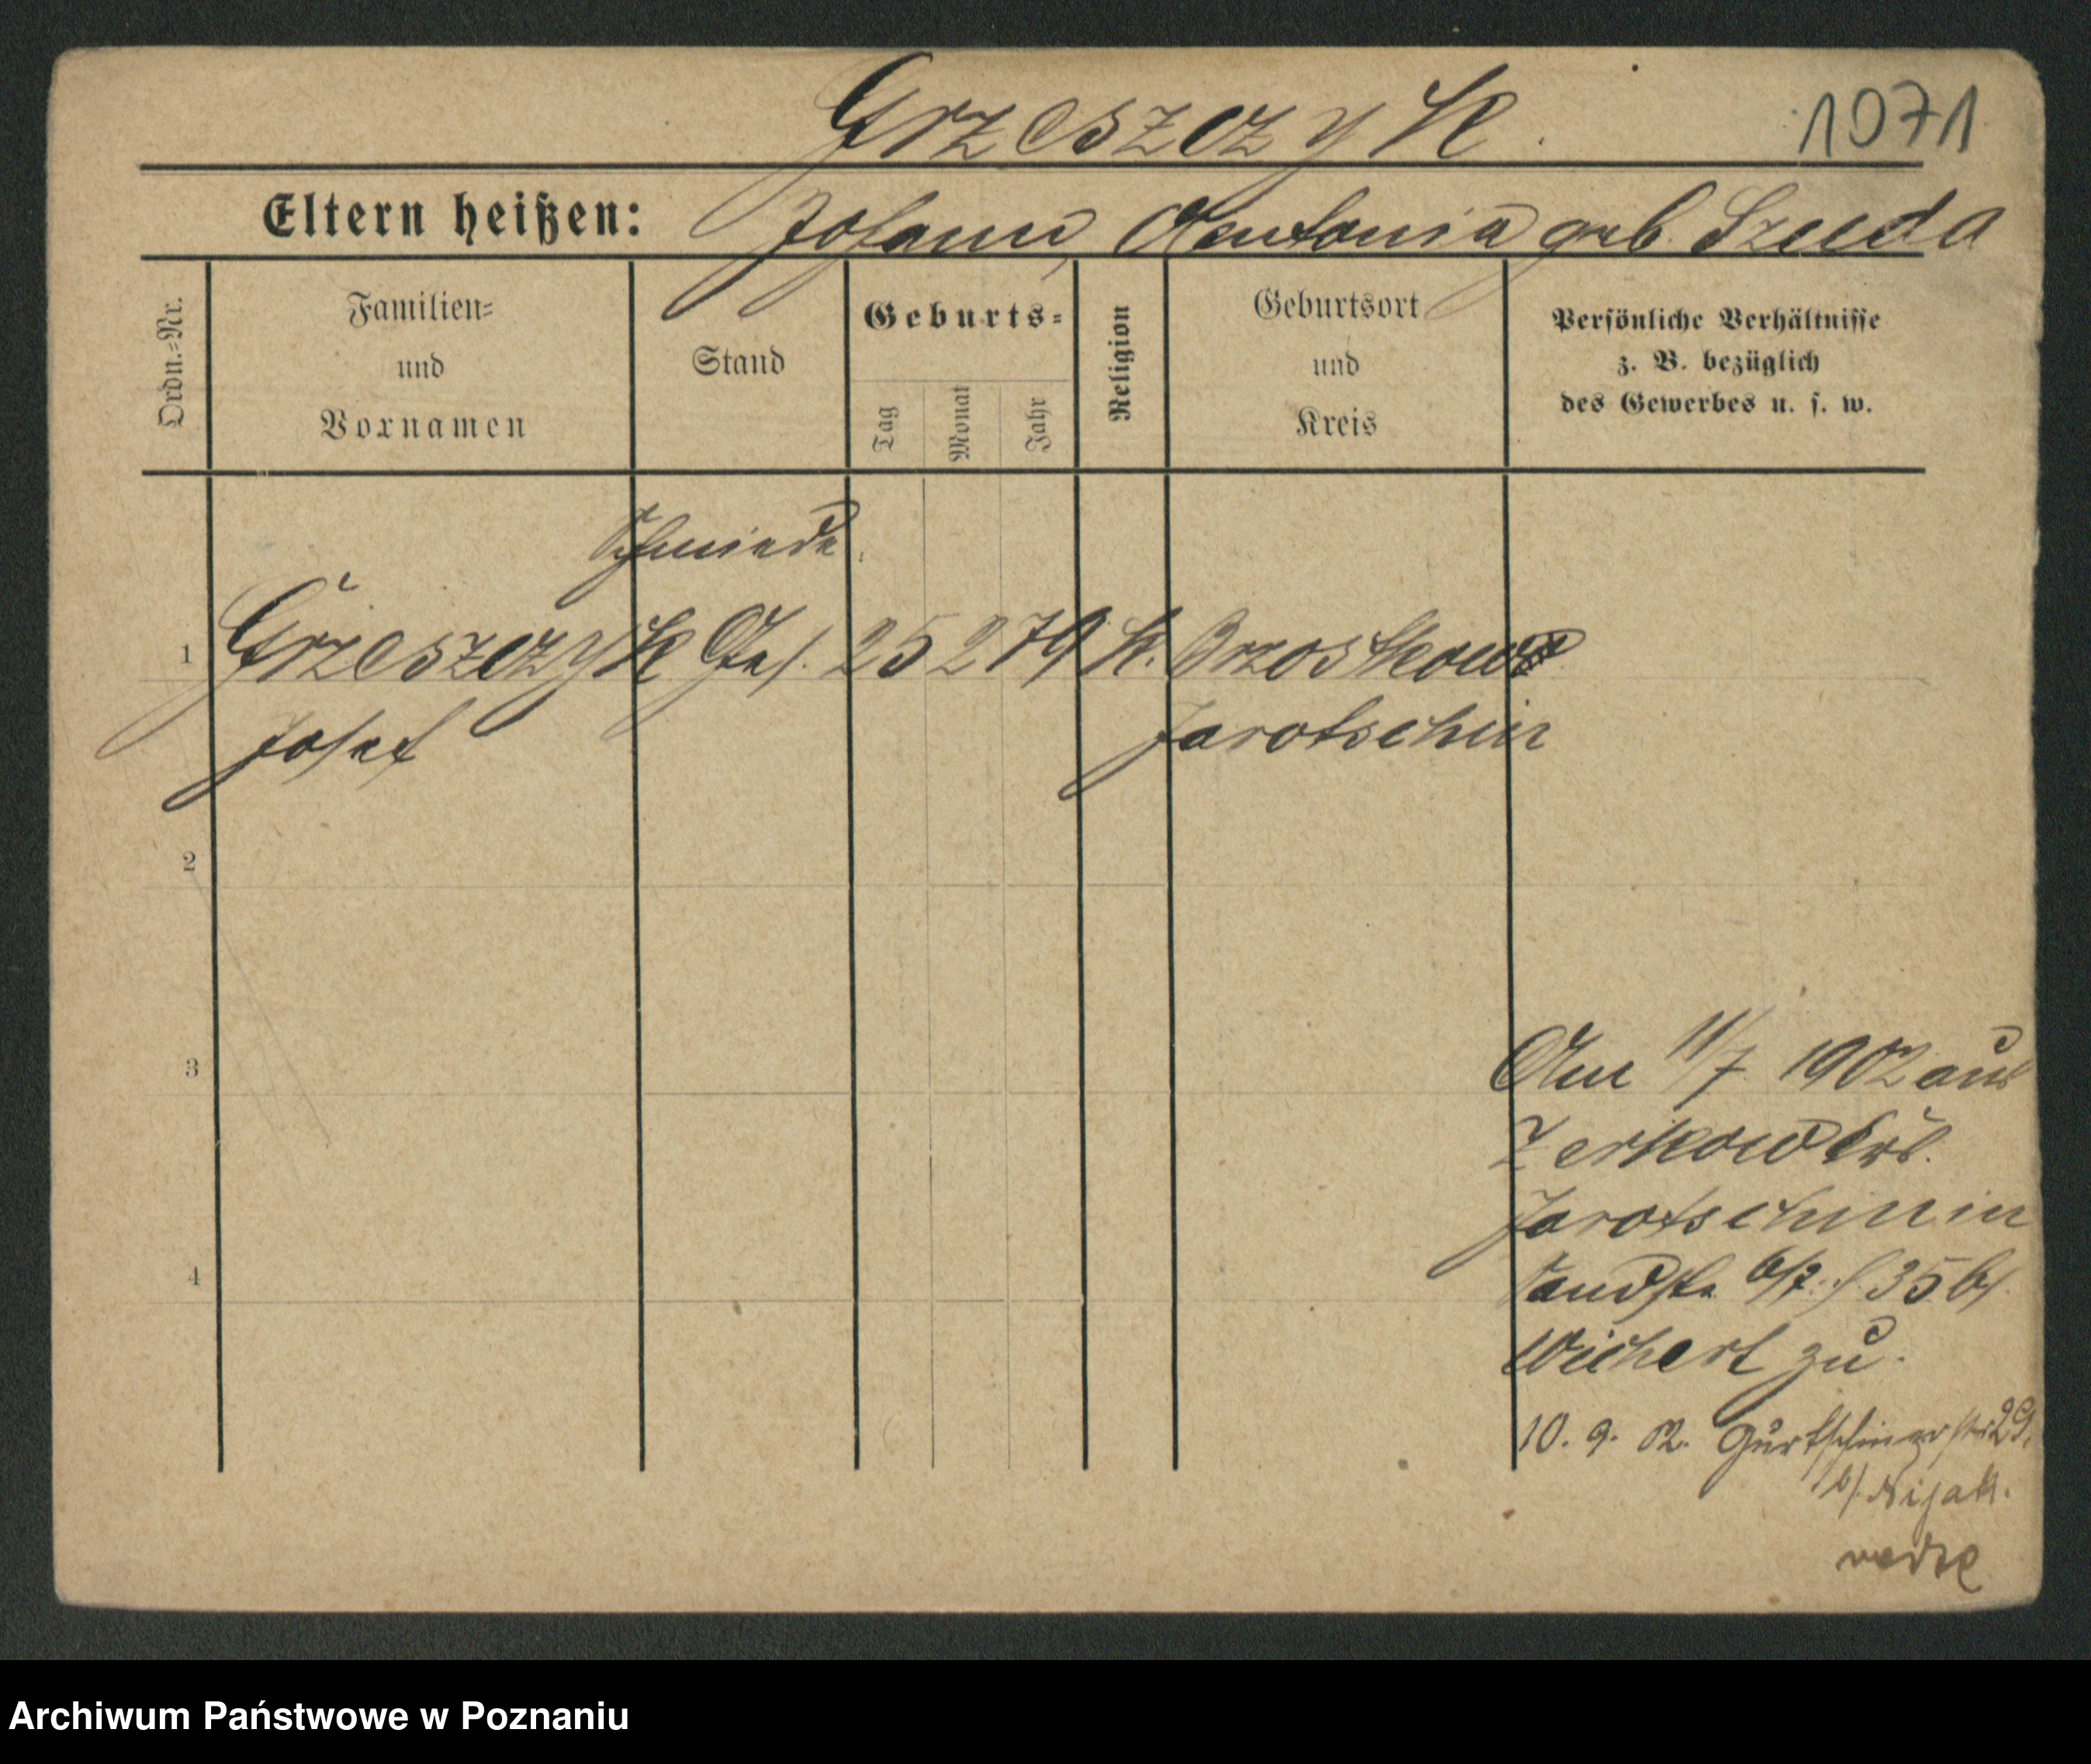 Grzeszczyk.
1071
Eltern heißen: Johann, Antonia geb. Szuda
Ordn.-Nr.
Familien-
und
Vornamen
Stand
Geburts-
Tag
Monat
Jahr
Religion
Geburtsort
und
Kreis
Persönliche Verhältnisse
z. B. bezüglich
des Gewerbes u. s. w.
Schmiede
1 Grzeszczyk Ges. 25 2 79 K. Brzostkow
Josef Jarotschin
2
3
4
Am 11/7 1902 aus
Zerkow Krs.
Jarotschin in
Sandstr. 6/7. 35 b/
Wichert zu.
10. 9. 02. Gurtschinerstr 29.
b/ Nijak.
Archiwum Państwowe w Poznaniu